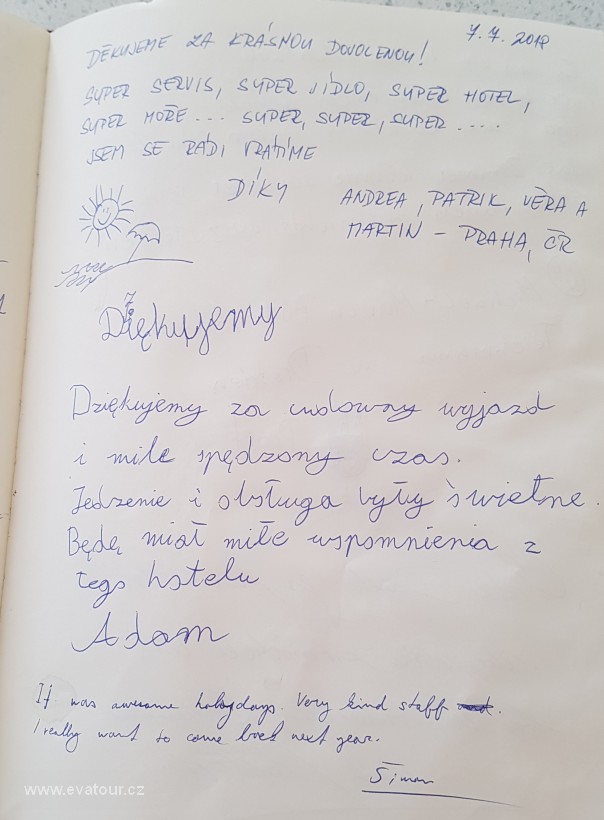 7.7. 2018
DĚKUJEME ZA KRÁSNOU DOVOLENOU!
SUPER SERVIS, SUPER JÍDLO, SUPER HOTEL,
SUPER MOŘE ... SUPER, SUPER, SUPER ....
JSEM SE RÁDI VRÁTÍME
DÍKY
ANDREA, PATRIK, VĚRA A
MARTIN – PRAHA, ČR
Dziękujemy
Dziękujemy za cudowny wyjazd
i mile spędzony czas.
Jedzenie i obsługa były świetne.
Będę miał miłe wspomnienia z
tego hotelu
Adam
It was awesome holoydays. Very kind staff.
I really want to come back next year.
Šimon
www.evatour.cz